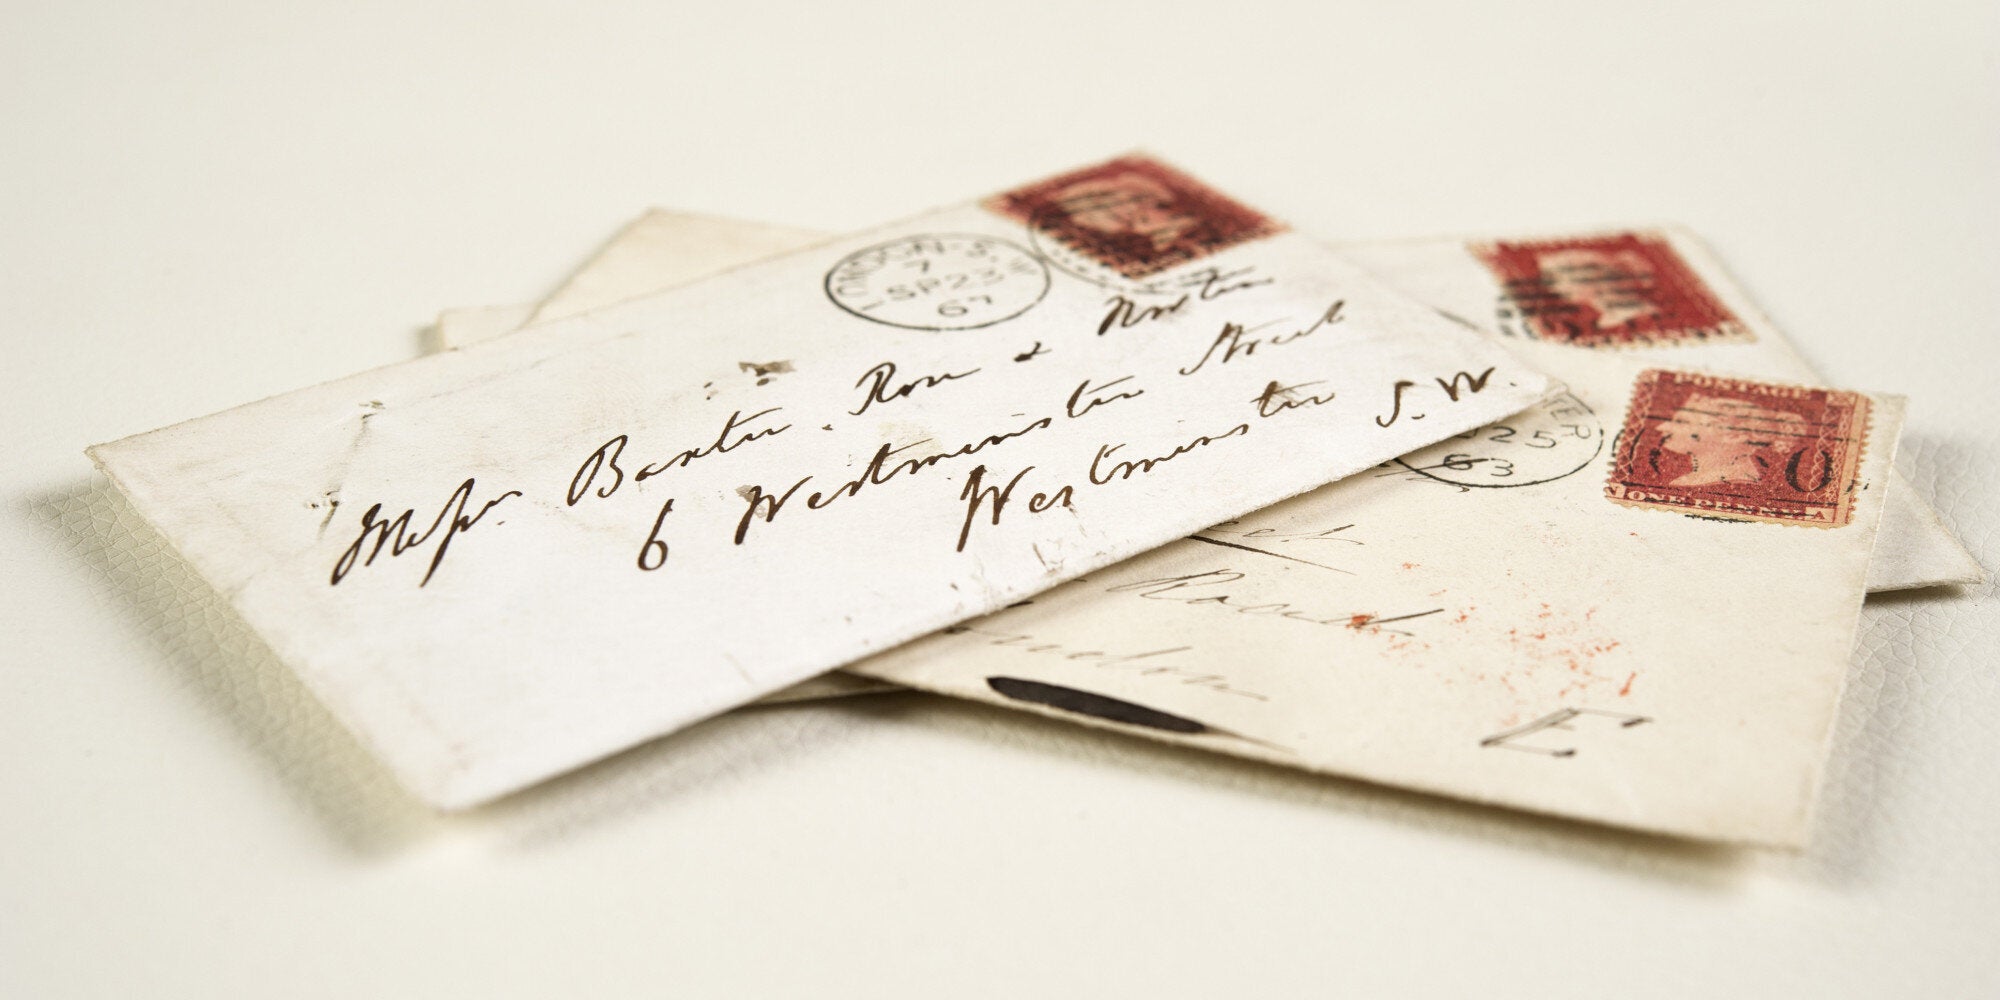 LONDON-S.W
7
SP23
67
Messrs. Baxter, Rose & Norton
6 Westminster Street
Westminster S.W.
TER
25
63
POSTAGE
ONE PENNY
A
Road
London
E